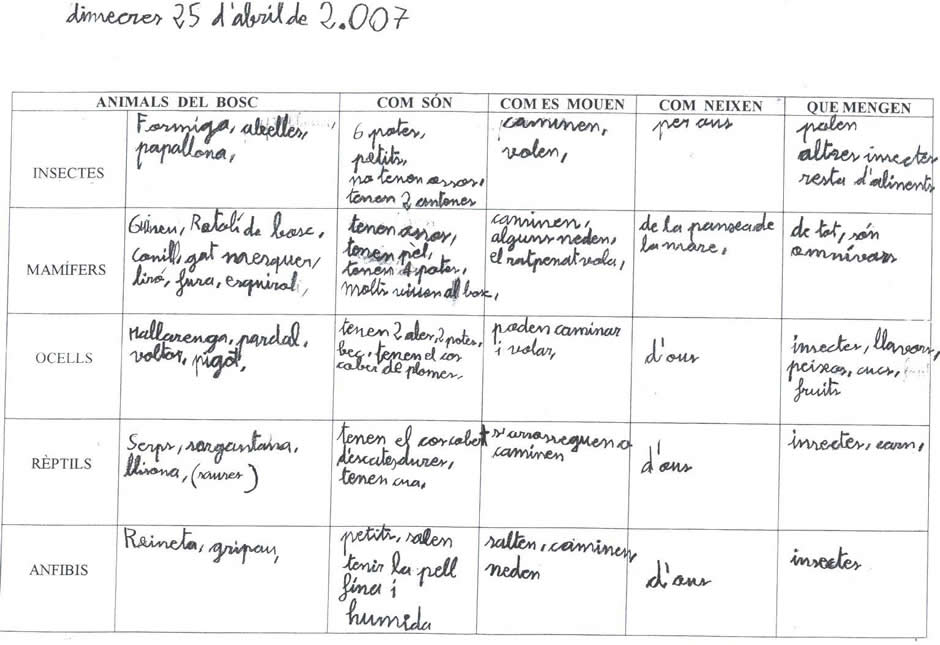 dimecres 25 d'abril de 2.007
ANIMALS DEL BOSC COM SÓN COM ES MOUEN COM NEIXEN QUE MENGEN
INSECTES
Formiga, abelles,
papallona,
6 potes,
petits,
no tenen ossos,
tenen 2 antenes
caminen,
volen,
per ous
polen
altres insectes
resta d'aliments
MAMÍFERS
Guineu, Ratolí de bosc,
Conill, gat mesquer,
liró, fura, esquirol,
tenen ossos,
tenen pèl,
tenen 4 potes,
molts viuen al bosc,
caminen,
alguns neden,
el ratpenat vola,
de la panxa de
la mare,
de tot, són
omnívors
OCELLS
Mallarenga, pardal,
voltor, pigot,
tenen 2 ales, 2 potes,
bec, tenen el cos
cobert de plomes.
poden caminar
i volar,
d'ous
insectes, llavors,
peixos, cucs,
fruits
RÈPTILS
Serps, sargantana,
llisona, (saures)
tenen el cos cobert
d'escates dures,
tenen cua,
s'arrosseguen o
caminen
d'ous
insectes, carn,
ANFIBIS
Reineta, gripau,
petits, solen
tenir la pell
fina i
humida
salten, caminen,
neden
d'ous
insectes